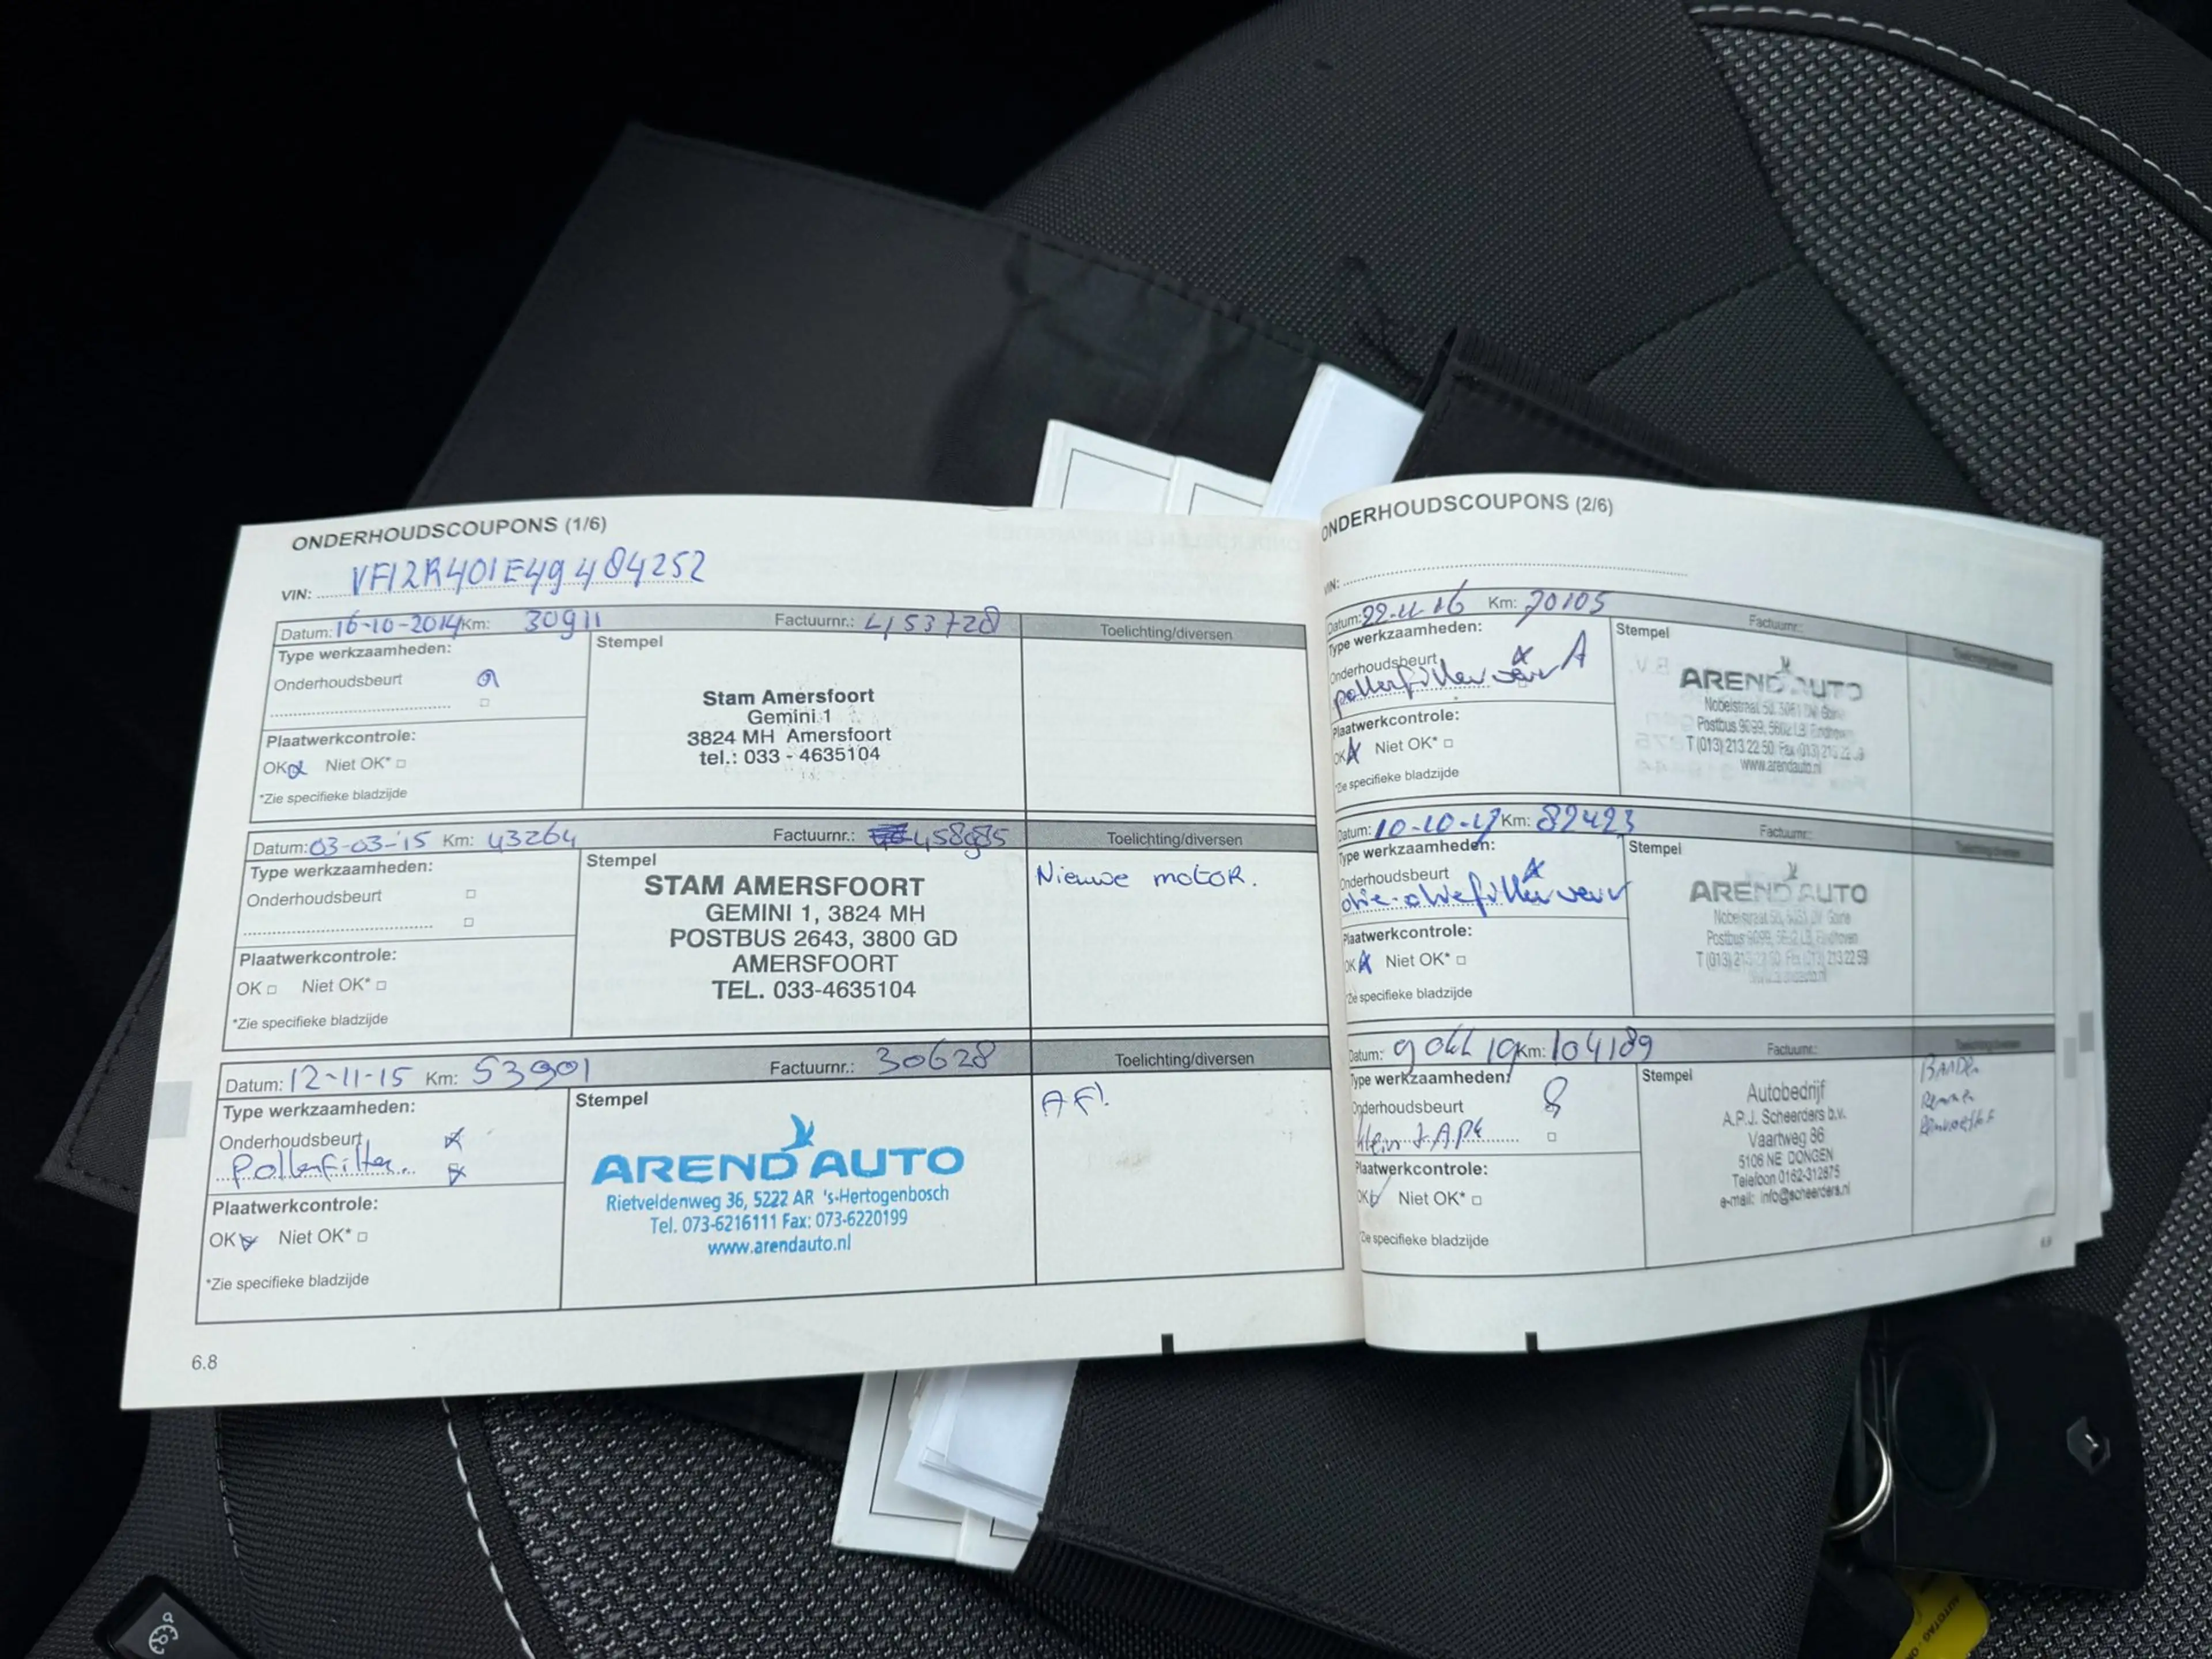 ONDERHOUDSCOUPONS (1/6)
VIN: VF12R401E49484252
Datum: 16-10-2014 Km: 30911 Factuurnr.: 453728 Toelichting/diversen
Type werkzaamheden:
Onderhoudsbeurt
Plaatwerkcontrole:
OK Niet OK*
*Zie specifieke bladzijde
Stempel
Stam Amersfoort
Gemini 1
3824 MH Amersfoort
tel.: 033 - 4635104
Datum: 03-03-'15 Km: 43264 Factuurnr.: 458985 Toelichting/diversen
Type werkzaamheden:
Onderhoudsbeurt
Plaatwerkcontrole:
OK Niet OK*
*Zie specifieke bladzijde
Stempel
STAM AMERSFOORT
GEMINI 1, 3824 MH
POSTBUS 2643, 3800 GD
AMERSFOORT
TEL. 033-4635104
Nieuwe motor.
Datum: 12-11-15 Km: 53901 Factuurnr.: 30628 Toelichting/diversen
Type werkzaamheden:
Onderhoudsbeurt
Pollenfilter
Plaatwerkcontrole:
OK Niet OK*
*Zie specifieke bladzijde
Stempel
AREND AUTO
Rietveldenweg 36, 5222 AR 's-Hertogenbosch
Tel. 073-6216111 Fax: 073-6220199
www.arendauto.nl
AF!
6.8
ONDERHOUDSCOUPONS (2/6)
VIN:
Datum: 22-11-16 Km: 70105 Factuurnr.: Toelichting/diversen
Type werkzaamheden:
Onderhoudsbeurt A
pollenfilter verv
Plaatwerkcontrole:
OK Niet OK*
*Zie specifieke bladzijde
Stempel
AREND AUTO
Nobelstraat 50, 5051 DV Goirle
Postbus 9099, 5602 LB Eindhoven
T (013) 213 22 50 Fax (013) 213 22 59
www.arendauto.nl
Datum: 10-10-17 Km: 82423 Factuurnr.: Toelichting/diversen
Type werkzaamheden:
Onderhoudsbeurt
olie-oliefilter verv
Plaatwerkcontrole:
OK Niet OK*
*Zie specifieke bladzijde
Stempel
AREND AUTO
Nobelstraat 50, 5051 DV Goirle
Postbus 9099, 5602 LB Eindhoven
T (013) 213 22 50 Fax (013) 213 22 59
www.arendauto.nl
Datum: 9 okt 19 Km: 104189 Factuurnr.: Toelichting/diversen
Type werkzaamheden:
Onderhoudsbeurt
klein + APK
Plaatwerkcontrole:
OK Niet OK*
*Zie specifieke bladzijde
Stempel
Autobedrijf
A.P.J. Scheerders b.v.
Vaartweg 86
5106 NE DONGEN
Telefoon 0162-312875
e-mail: info@scheerders.nl
BANDEN
Remmen
Remvloeistof
6.9
AUTOTAG